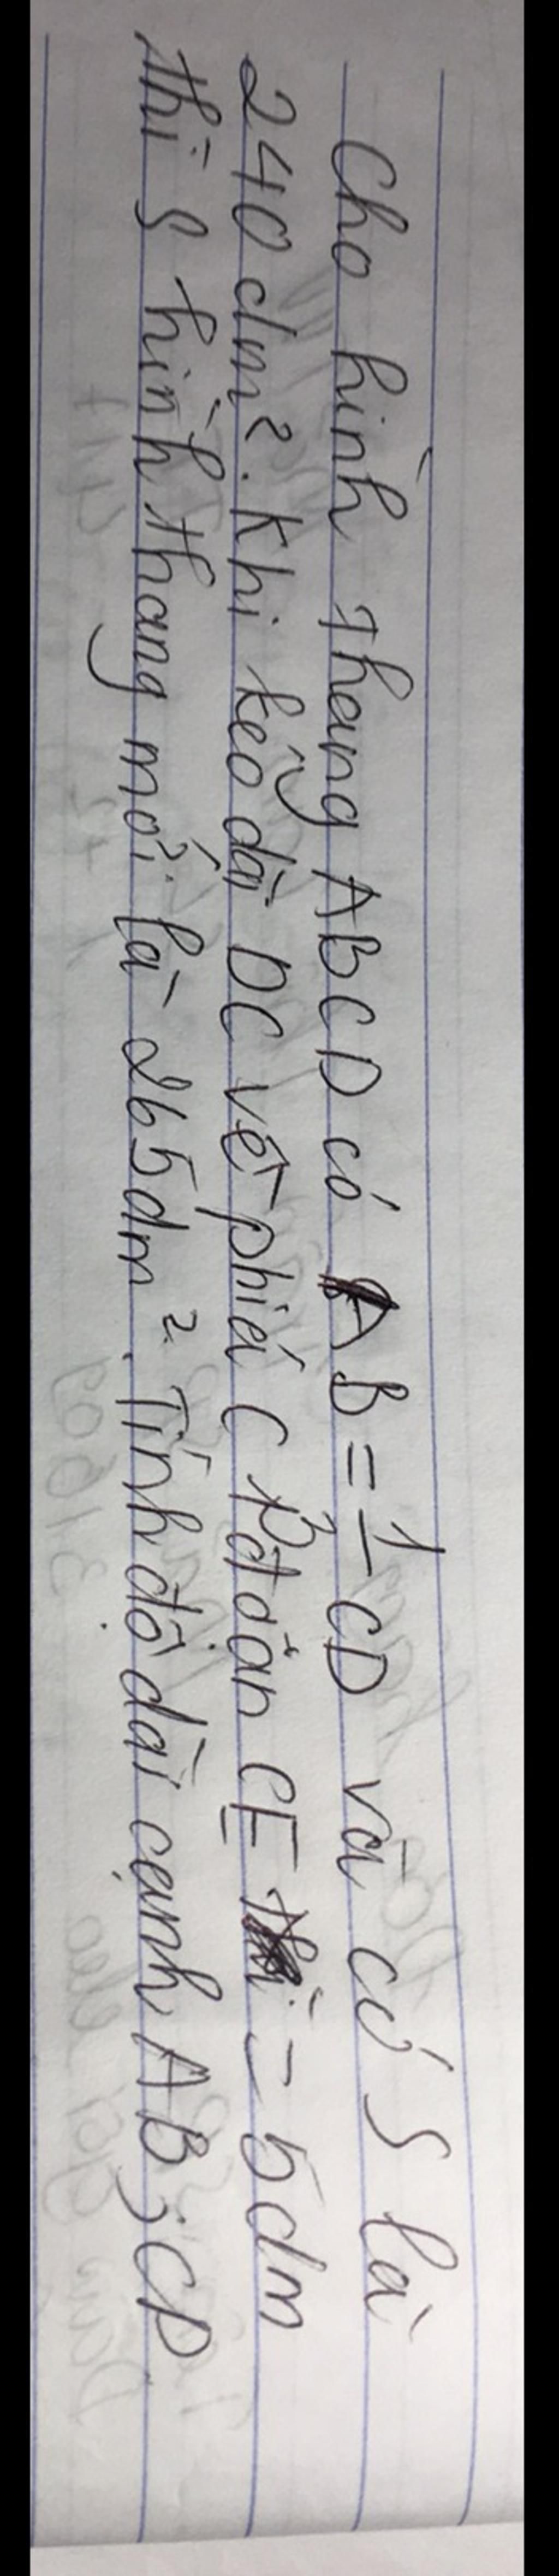 Cho hình thang ABCD có AB = 1 CD và có S là
240 dm². Khi kéo dài DC về phiá C 1 đoản CE = 5dm
thì S hình thang mới là 265dm². Tính độ dài cạnh AB, CD